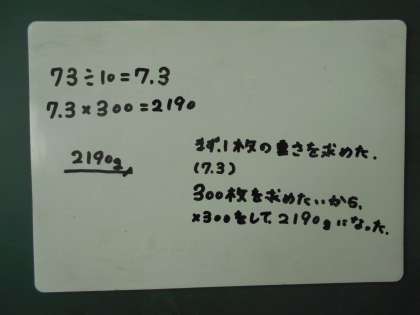 73÷10=7.3
7.3×300=2190
2190g
まず、1枚の重さを求めた.
(7.3)
300枚を求めたいから、
×300をして、2190gになった.